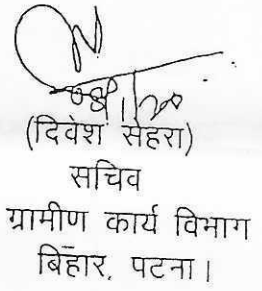 (दिवेश सेहरा)
सचिव
ग्रामीण कार्य विभाग
बिहार, पटना।